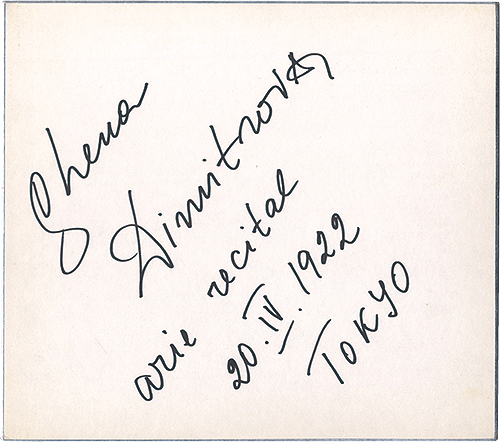 Ghena
Dimitrova
arie recital
20.IV.1922
TOKYO